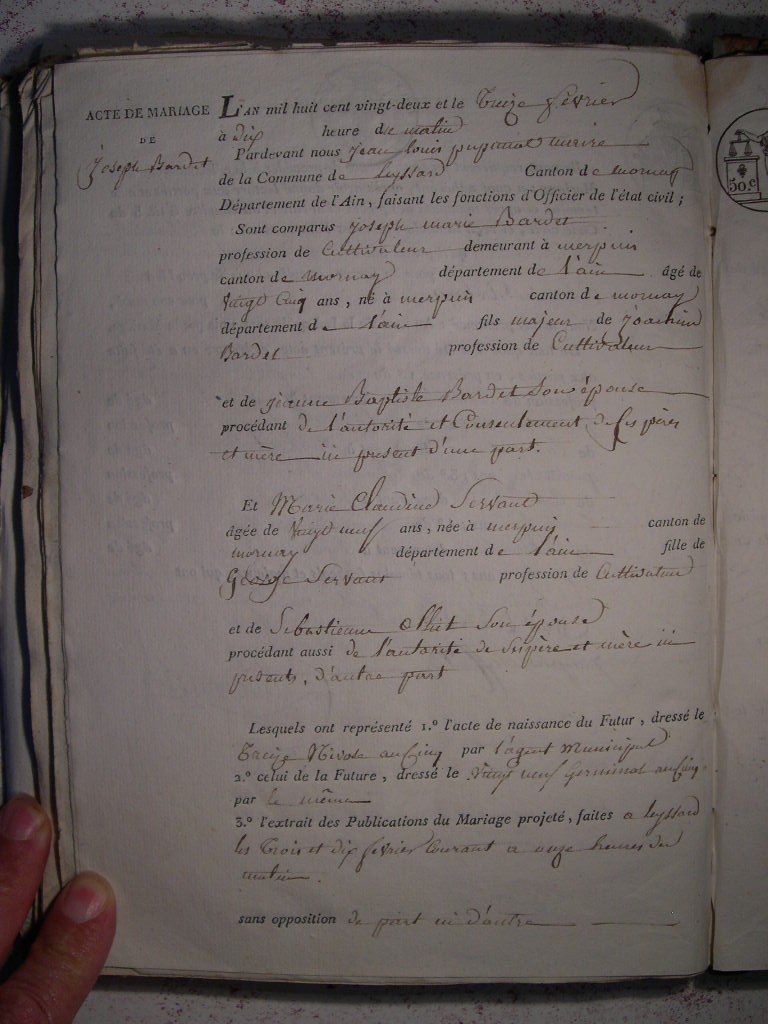 ACTE DE MARIAGE
DE
Joseph Bardet
L'AN mil huit cent vingt-deux et le Treize fevrier
à Dix heure du matin
Pardevant nous Jean louis mairie
de la Commune de leyssard Canton de mornay
Département de l'Ain, faisant les fonctions d'Officier de l'état civil ;
Sont comparus joseph marie Bardet
profession de Cultivateur demeurant à merpuis
canton de mornay département de l'ain âgé de
vingt Cinq ans, né à merpuis canton de mornay
département de l'ain fils majeur de joachim
Bardet profession de Cultivateur
et de jeanne Baptiste Bardet Son épouse
procédant de l'autorité et Consentement de ses père
et mère ici present d'une part.
Et Marie Claudine Servant
âgée de vingt neuf ans, née à merpuis canton de
mornay département de l'ain fille de
George Servant profession de Cultivateur
et de Sebastienne Son épouse
procédant aussi de l'autorité de ses père et mère ici
présents, d'autre part
Lesquels ont représenté 1.º l'acte de naissance du Futur, dressé le
Treize Nivose an Cinq par l'agent Municipal
2.º celui de la Future, dressé le vingt neuf Germinal an
par le même
3.º l'extrait des Publications du Mariage projeté, faites a leyssard
les Trois et dix fevrier Courant a onze heures du
matin.
sans opposition de part ni d'autre
50.c